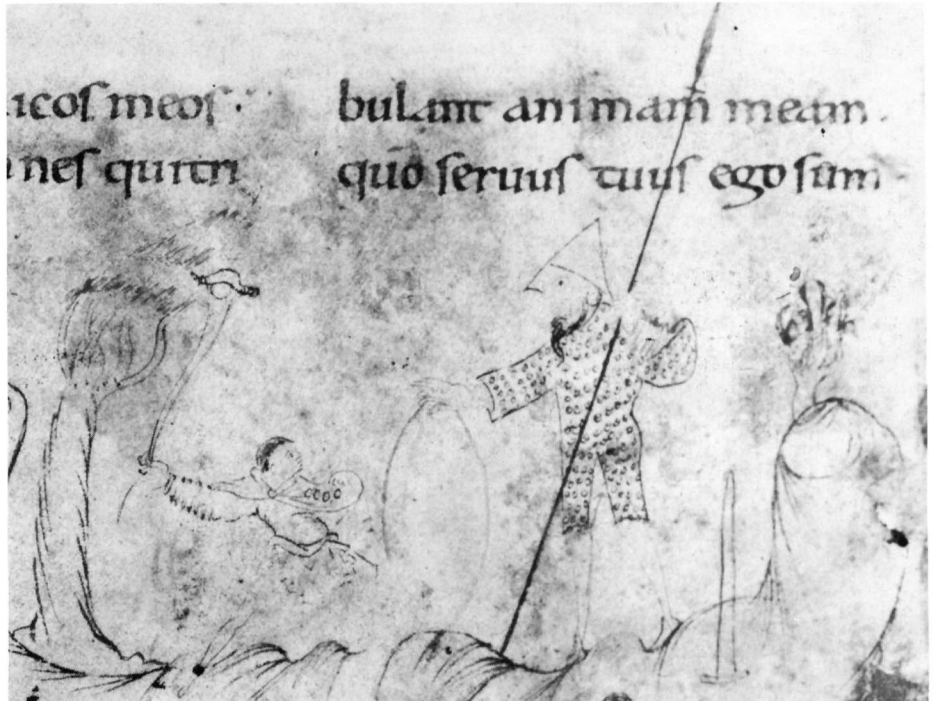 icos meos
nes qui tri
bulant animam meam.
quō seruus tuus ego sum